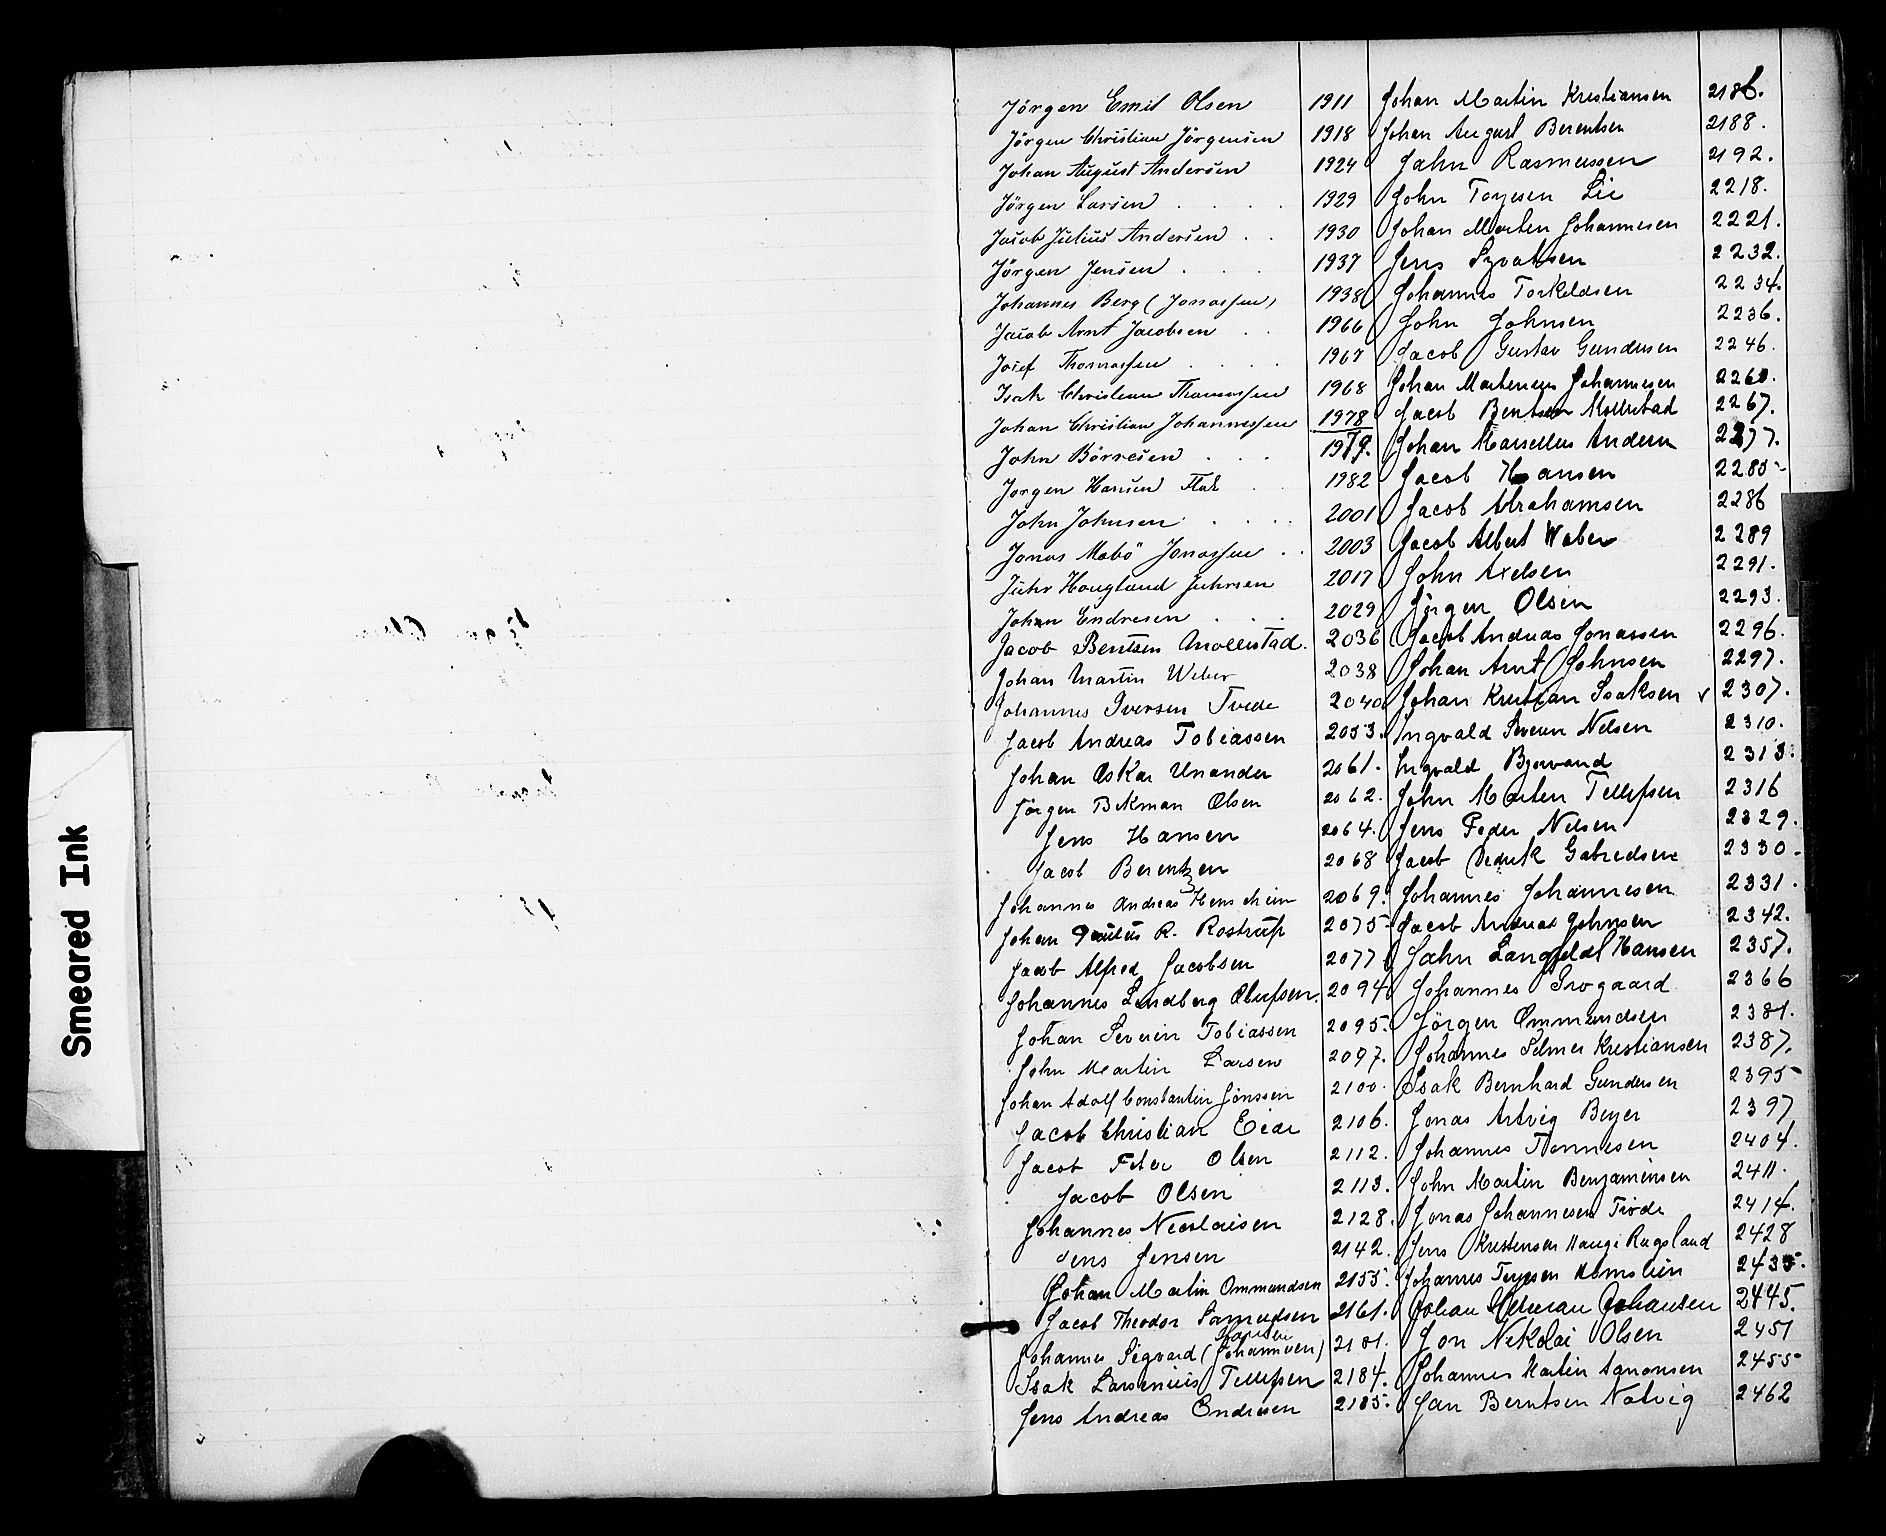 Smeared Ink
Jörgen Emil Olsen 1911
Jörgen Christian Jörgensen 1918
Johan August Andersen 1924
Jörgen Larsen . . . . 1929
Jacob Julius Andersen . . 1930
Jörgen Jensen . . . 1937
Johannes Berg (Jonassen) 1938
Jacob Arnt Jacobsen . . 1966
Josef Thomassen . . . . 1967
Isak Christian Thomassen 1968
Johan Christian Johannessen 1978
John Börresen . . . 1979.
Jörgen Hansen 1982
John Johnsen . . . . 2001
Jonas Mabö Jonassen . . 2003
Juhr Hougland Juhrsen 2017
Johan Endresen . . . 2029
Jacob Bentsen Mollestad. 2036
Johan Martin Weber 2038
Johannes Iversen Tvede 2040
Jacob Andreas Tobiassen 2053.
Johan Oskar Unander 2061.
Jörgen Bekman Olsen 2062.
Jens Hansen 2064.
Jacob Berentzen 2068
Johannes Andreas Henschien 2069.
Johan Paulus R. Rostrup 2075
Jacob Alfred Jacobsen 2077
Johannes Lindberg Olufsen. 2094
Johan Severin Tobiassen 2095.
John Martin Larsen 2097.
Johan Adolf Constantin Jonssen 2100.
Jacob Christian Eide 2106.
Jacob Peter Olsen 2112.
Jacob Olsen 2113.
Johannes Nicolaisen 2128.
Jens Jensen 2142.
Johan Martin Ommundsen 2155.
Jacob Theodor Samuelsen 2161.
Johannes Sigvard (Johannsen) 2181.
Isak Larsenius Tellefsen 2184.
Jens Andreas Endresen 2185.
Johan Martin Kristiansen 2186.
Johan August Berentsen 2188.
John Rasmussen 2192.
John Torjesen Lie 2218.
Johan Morten Johannesen 2221.
Jens Syvertsen 2232.
Johannes Torkeldsen 2234.
John Johnsen 2236.
Jacob Gustav Gundersen 2246.
Johan Martenius Johannesen 2260.
Jacob Bentsen Mollestad 2267.
Johan Marselius Andersn 2277.
Jacob Hansen 2285
Jacob Abrahamsen 2286
Jacob Albert Weber 2289
John Axelsen 2291.
Jörgen Olsen 2293.
Jacob Andreas Jonassen 2296.
Johan Arnt Johnsen 2297.
Johan Kristian Isaksen v 2307.
Ingvald Severin Nilsen 2310.
Ingvald Bjorvand 2313.
John Marten Tellefsen 2316
Jens Peder Nilsen 2329.
Jacob Dedrik Gabrielsen 2330.
Johannes Johannesen 2331.
Jacob Andreas Johnsen 2342.
John Langfeldt Hansen 2357.
Johannes Brogaard 2366
Jörgen Ommundsen 2381.
Johannes Selmer Kristiansen 2387.
Isak Bernhard Gundersen 2395
Jonas Artvig Beyer 2397
Johannes Tönnesen 2404.
John Martin Benjaminsen 2411.
Jonas Johannesen Tvöde 2414.
Jens Kristensen Haugi Rugsland 2428
Johannes Terjesen 2435.
Johan Herman Johansen 2445.
Jon Nikolai Olsen 2451
Johannes Martin Aanonsen 2455
Jan Berntsen Natvig 2462